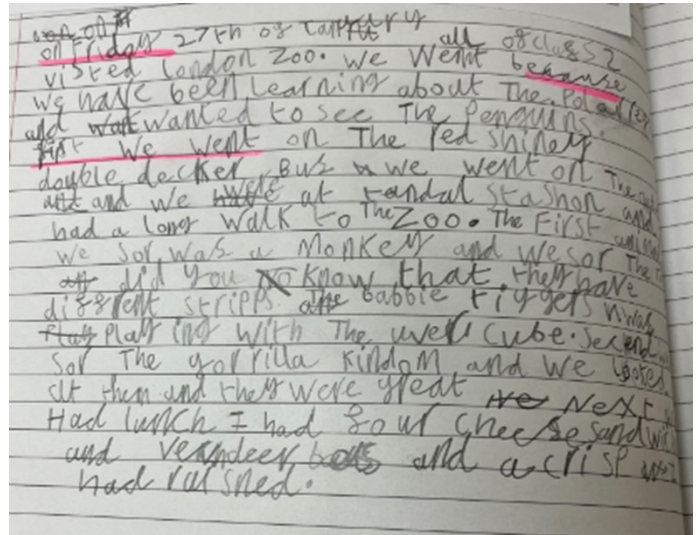 on Friday 27th of
visted London Zoo. we went all of class 2 because
we have been learning about The Pol
and wanted to see The Penguins.
first we went on The red shiney
double decker Bus we went on The
and we were at randal stashon and
had a long walk to The Zoo. The First
we sor was a Monkey and we sor The
did you know that they have
different stripps babbie tiggers
playing with The uver cube. second
sor The gorrilla Kindom and we looked
at them and they were great Next
Had lunch I had four cheese sandwich
and and a crisp
had raisned.